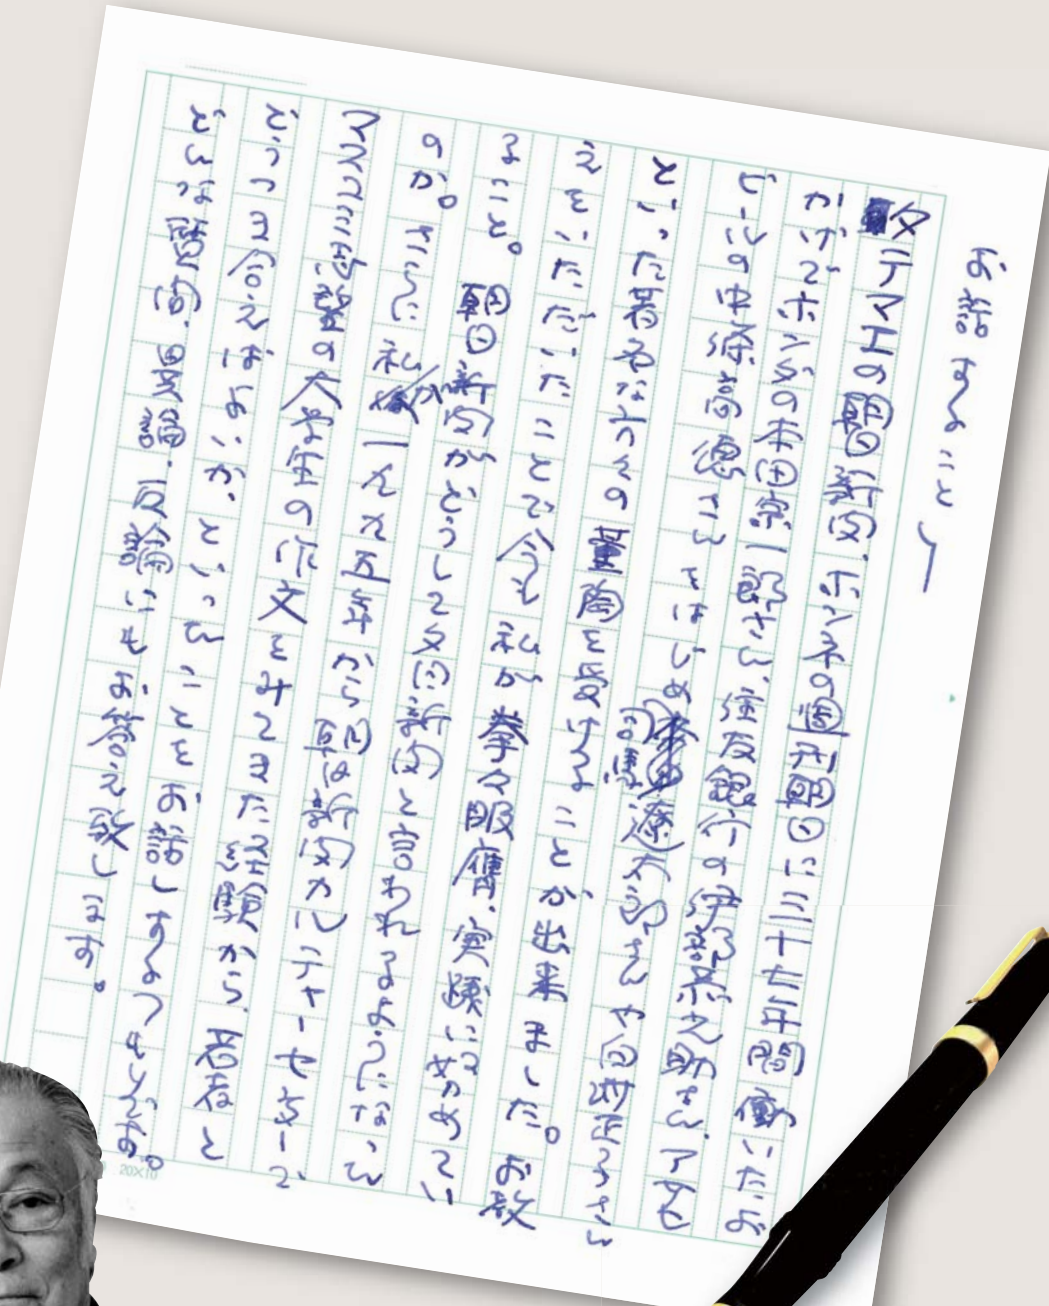 お話すること
タテマエの朝日新聞、ホンネの週刊朝日に三十七年間働いたお
かげでホンダの本田宗一郎さん、住友銀行の伊部恭之助さん、アサヒ
ビールの中條高徳さんをはじめ司馬遼太郎さんや白洲正子さん
といった著名な方々の薫陶を受けることが出来ました。お教
えをいただいたことで今も私が拳々服膺、実践に努めてい
ること。朝日新聞がどうして夕日新聞と言われるようになった
のか。さらに私が一九九五年から朝日新聞カルチャーセンターで
マスコミ志望の大学生の作文をみてきた経験から、若者と
どうつき合えばよいか、といったことをお話しするつもりです。
どんな質問、異論、反論にもお答え致します。
20×10